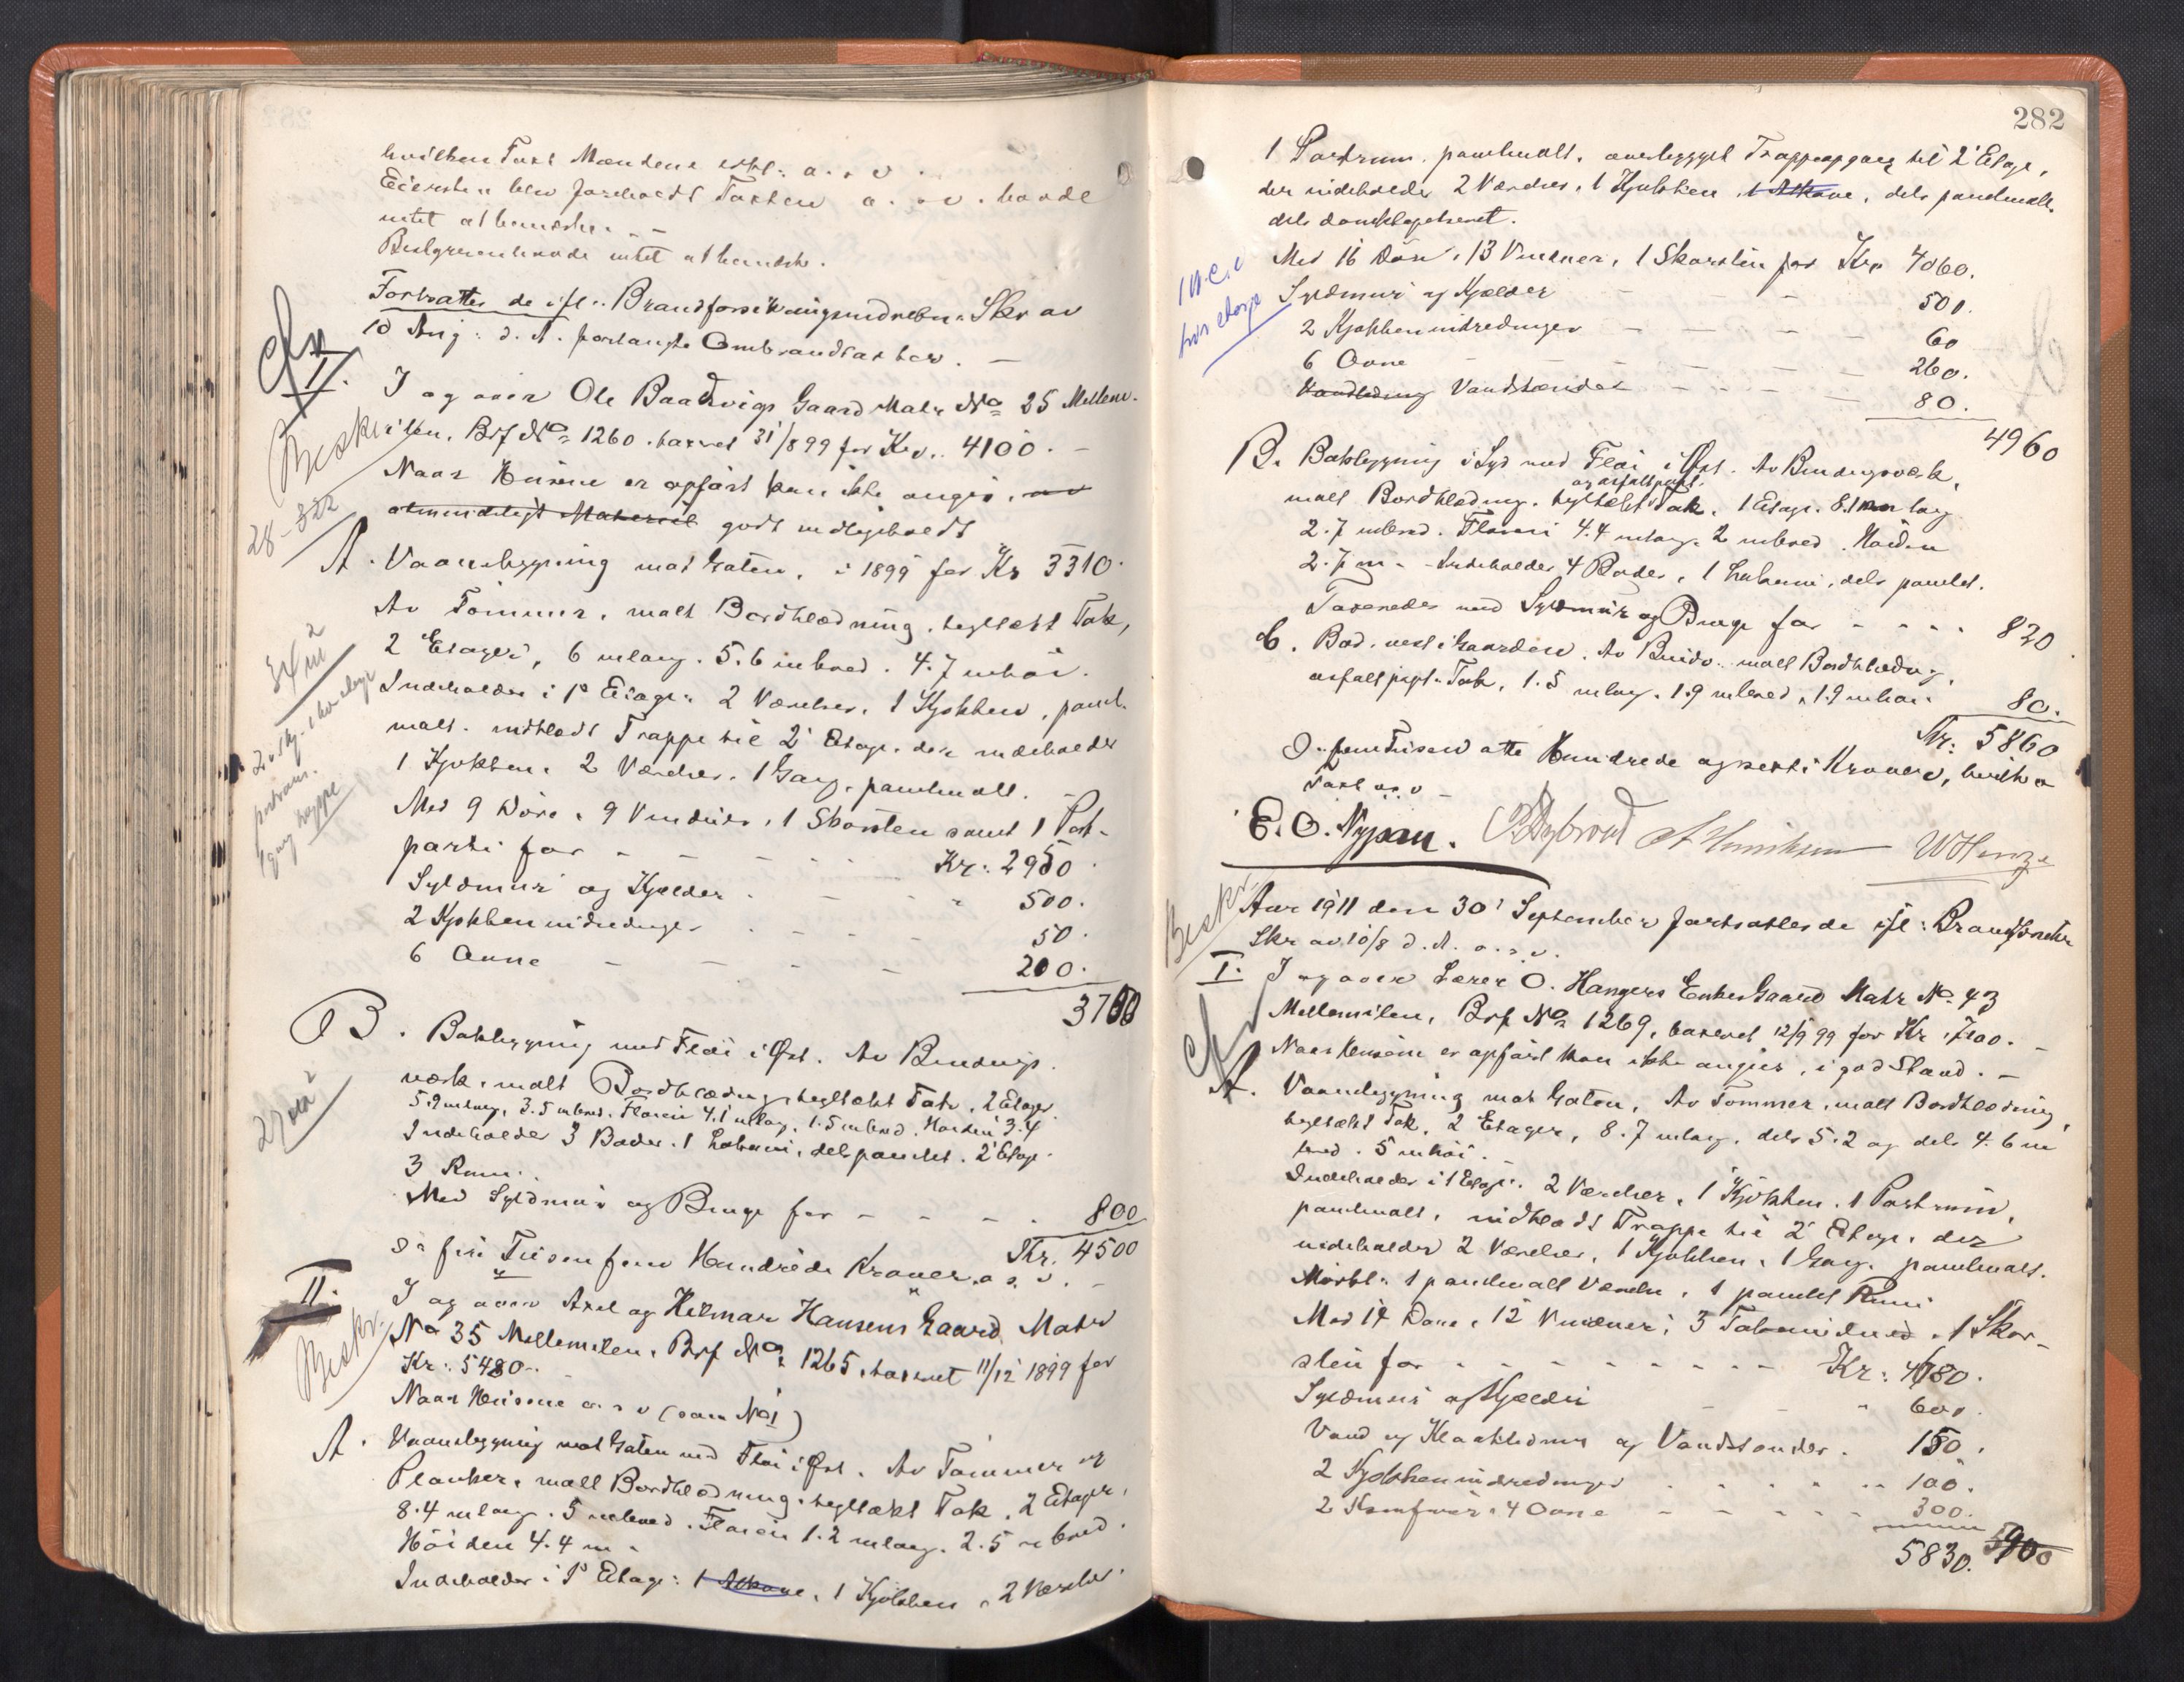 hvilken Taxt Mændene erkl: o. s. v.
Eiersken blev foreholdt Taxten o. s. v. havde
intet at bemerke. –
Bestyreren havde intet at bemerke.
Fortsattes de ifl. Brandforsikringsindretn. Skr av
10 Aug: d. A. forlangte Ombrandtaxter. –
I.
I og over Ole Baardsvigs Gaard Matr No 25 Mellem-
milen. Brf No 1260. taxeret 31/8 99 for Kr. 4100. –
Naar Husene er opført kan ikke angis, av
almindeligt Materiel godt vedligeholdt
Beskr
28-322
A. Vaaningsbygning mot Gaten, i 1899 for Kr 3310.
Av Tømmer, malt Bordklædning, teglsekt Tak,
2 Etager, 6 m lang. 5.6 m bred. 4.7 m høi.
Indeholder i 1s Etage: 2 Værelser, 1 Kjøkken, panel
malt. indklædt Trappe til 2' Etage, der indeholder
1 Kjøkken, 2 Værelser, 1 Gang, panelmalt. –
Med 9 Døre, 9 Vinduer, 1 Skorsten samt 1 Port-
parti for – – – Kr: 2950.
Syldmur og Kjelder – – 500.
2 Kjøkkenindredninger – – 50.
6 Ovne – – – – 200.
3700
34 m2
2 v. 1 kj. i hver etage
portrum.
1 gang trappe
B. Bakbygning med Fløi i Øst. Av Bindings-
værk, malt Bordklædning, teglsekt Tak, 2 Etager
5.9 m lang, 3.5 m bred. Fløien 4.1 m lang, 1.5 m bred. Høiden 3.4
Indeholder 3 Boder, 1 Lokum, dels panelet. 2' Etage
3 Rum.
Med Syldmur og Binge for – – – 800
27 m2
Kr. 4500
Sr fire Tusen fem Hundrede Kroner o. s. v. –
II.
I og over Axel og Hilmar Hansens Gaard Matr
No 35 Mellemmilen. Brf No 1265, taxeret 11/12 1899 for
Kr: 5480. –
Naar Husene o. s. v (som No 1)
Beskr.
A. Vaaningsbygning mot Gaten med Fløi i Øst. Av Tømmer og
Planker, malt Bordklædning, teglsekt Tak, 2 Etager,
8.4 m lang. 5 m bred. Fløien 1.2 m lang. 2.5 m bred.
Høiden 4.4 m.
Indeholder i 1s Etage: 1 Alkove, 1 Kjøkken, 2 Værelser.
282
1 Portrum, panelmalt, overbygget Trappeopgang til 2' Etage,
der indeholder 2 Værelser, 1 Kjøkken, 1 Alkove, dels panelmalt
dels damektapetseret.
Med 16 Døre, 13 Vinduer, 1 Skorsten for Kr. 4060.
Syldmur og Kjelder – – – 500.
2 Kjøkkenindredninger – – – 60
6 Ovne – – – – 260.
Vandledning Vandstender – – – 80.
4960
1 W.C. i
hver etage
B. Bakbygning i Syd med Fløi i Øst. Av Bindingsverk,
malt Bordklædning, teglsekt og asfaltpapt. Tak. 1 Etage. 8.1 m lang
2.7 m bred. Fløien 4.4 m lang. 2 m bred. Høiden
2.7 m. – Indeholder 4 Boder, 1 Lokum, dels panelet.
Taxeredes med Syldmur og Binge for – – – 820
C. Bod, vest i Gaarden. Av Bindv. malt Bordklædng,
asfaltpapt. Tak, 1.5 m lang. 1.9 m bred, 1.9 m høi. 80.
Kr: 5860
Sr. fem Tusen otte Hundrede og seksti Kroner, hvilken
Taxt o. s. v –
E. O. Nyjam. A Henriksen W Henze
Aar 1911 den 30' September fortsattes de ifl: Brandforsikr
Skr av 10/8 d. A. o. s. v.
Beskr.
I. I og over Lærer O. Hangers Enkes Gaard Matr No. 43
Mellemmilen, Brf No 1269, taxeret 12/9 99 for Kr. 7100. –
Naar Husene er opført kan ikke angies, i god Stand. –
A. Vaaningsbygning mot Gaten, Av Tømmer, malt Bordklædning,
teglsekt Tak, 2 Etager, 8.7 m lang, dels 5.2 og dels 4.6 m
bred. 5 m høi.
Indeholder i 1 Etage: 2 Værelser, 1 Kjøkken, 1 Portrum,
panelmalt, indklædt Trappe til 2' Etage, der
indeholder 2 Værelser, 1 Kjøkken, 1 Gang. panelmalt.
Mørkl: 1 panelmalt Værelse, 1 panelet Rum
Med 14 Døre, 12 Vinduer, 3 Takvinduer, 1 Skor-
sten for – – – – – Kr: 4680.
Syldmur og Kjelder – – 600.
Vand og Kloakledning og Vandstender. 150.
2 Kjøkkenindredninger – – – 100.
2 Komfurer, 4 Ovne – – – 300.
5830. 5900